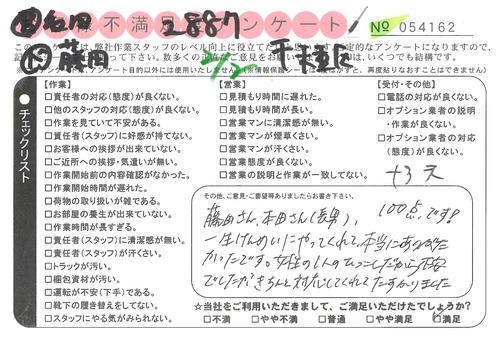 2887
お客様不満足度アンケート
№ 054162
藤田
7/2
千種区
このアンケートは、弊社作業スタッフのレベル向上に役立てたいと思います。
※このアンケートは、アンケート目的以外には使用いたしません。
チェックリスト
【作業】
□責任者の対応(態度)が良くない。
□他のスタッフの対応(態度)が良くない。
□作業を見ていて不安がある。
□責任者(スタッフ)に好感が持てない。
□お客様への挨拶が出来ていない。
□ご近所への挨拶・気遣いが無い。
□作業開始前の内容確認がなかった。
□作業開始時間が遅れた。
□荷物の取り扱いが雑である。
□お部屋の養生が出来ていない。
□作業時間が長すぎる。
□責任者(スタッフ)に清潔感が無い。
□責任者(スタッフ)が汗くさい。
□トラックが汚い。
□梱包資材が汚い。
□運転が不安(下手)である。
□靴下の履き替えをしてない。
□スタッフにやる気がみられない。
【営業】
□見積もり時間に遅れた。
□見積もり時間が長い。
□営業マンに清潔感が無い。
□営業マンが煙草くさい。
□営業マンが汗くさい。
□営業態度が良くない。
□営業の説明と作業が一致してない。
【受付・その他】
□電話の対応が良くない。
□オプション業者の説明・作業が良くない。
□オプション業者の対応(態度)が良くない。
その他、ご意見・ご要望等ありましたらお書き下さい。
藤田さん、本田さん(長男)、
100点です!
一生けんめいにやってくれて、本当にありがた
かったです。女性の1人のひっこしだから不安
でしたがきちんと対応してくれてたすかりました
☆当社をご利用いただきまして、ご満足いただけたでしょうか?
□不満 □やや不満 □普通 □やや満足 ☑満足